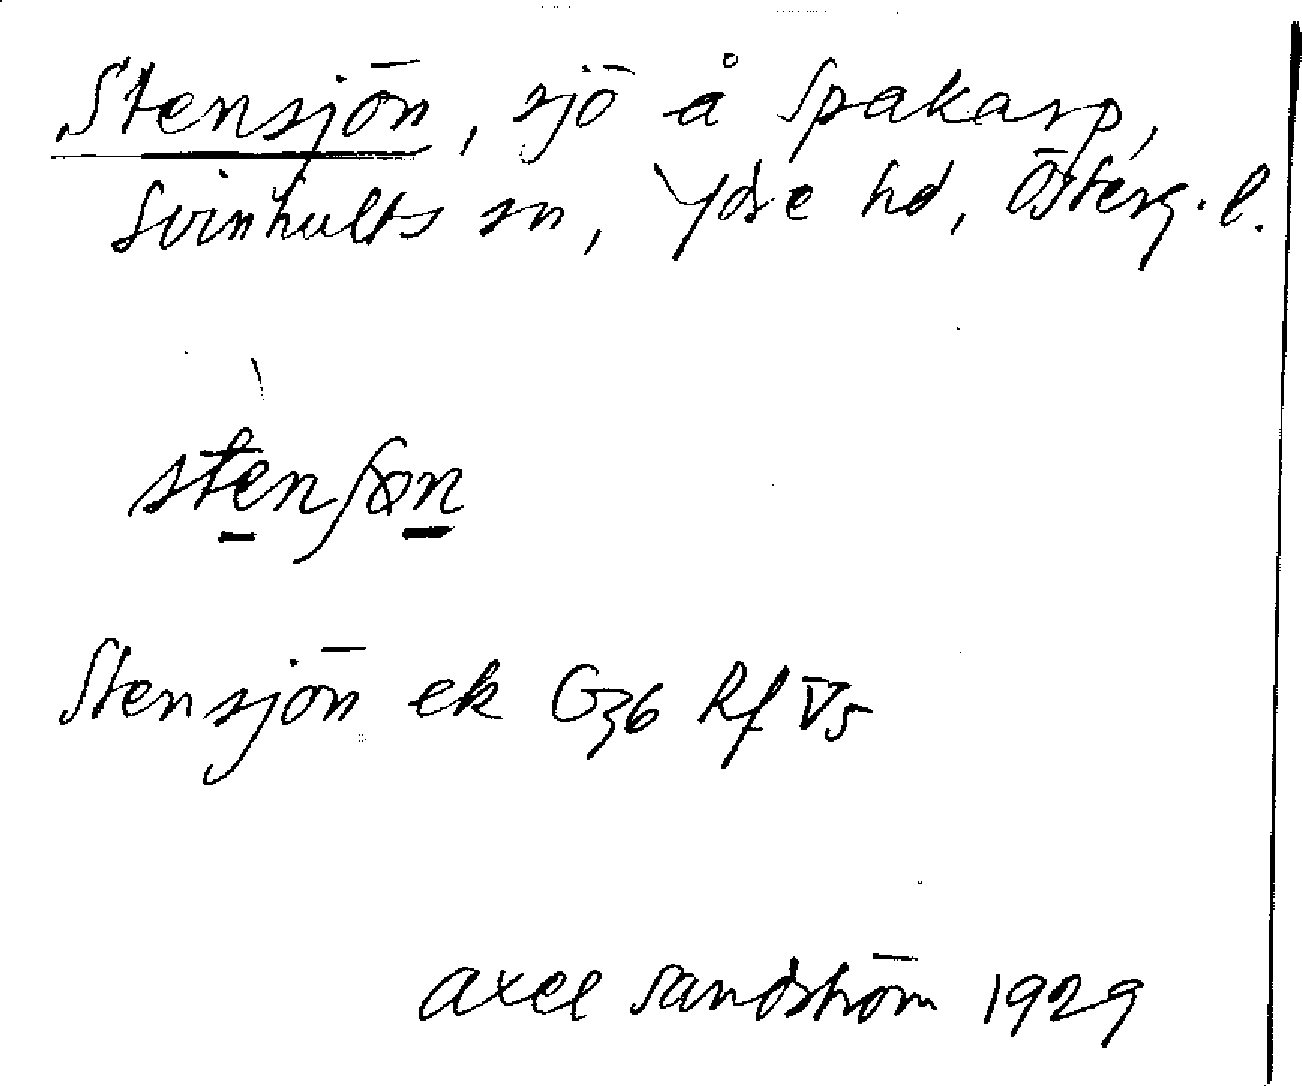 Stensjön, sjö å Spakarp,
Svinhults sn, Ydre hd, Österg. l.
stenʃøn
Stensjön ek G36 Rf V5
Axel Sandström 1929